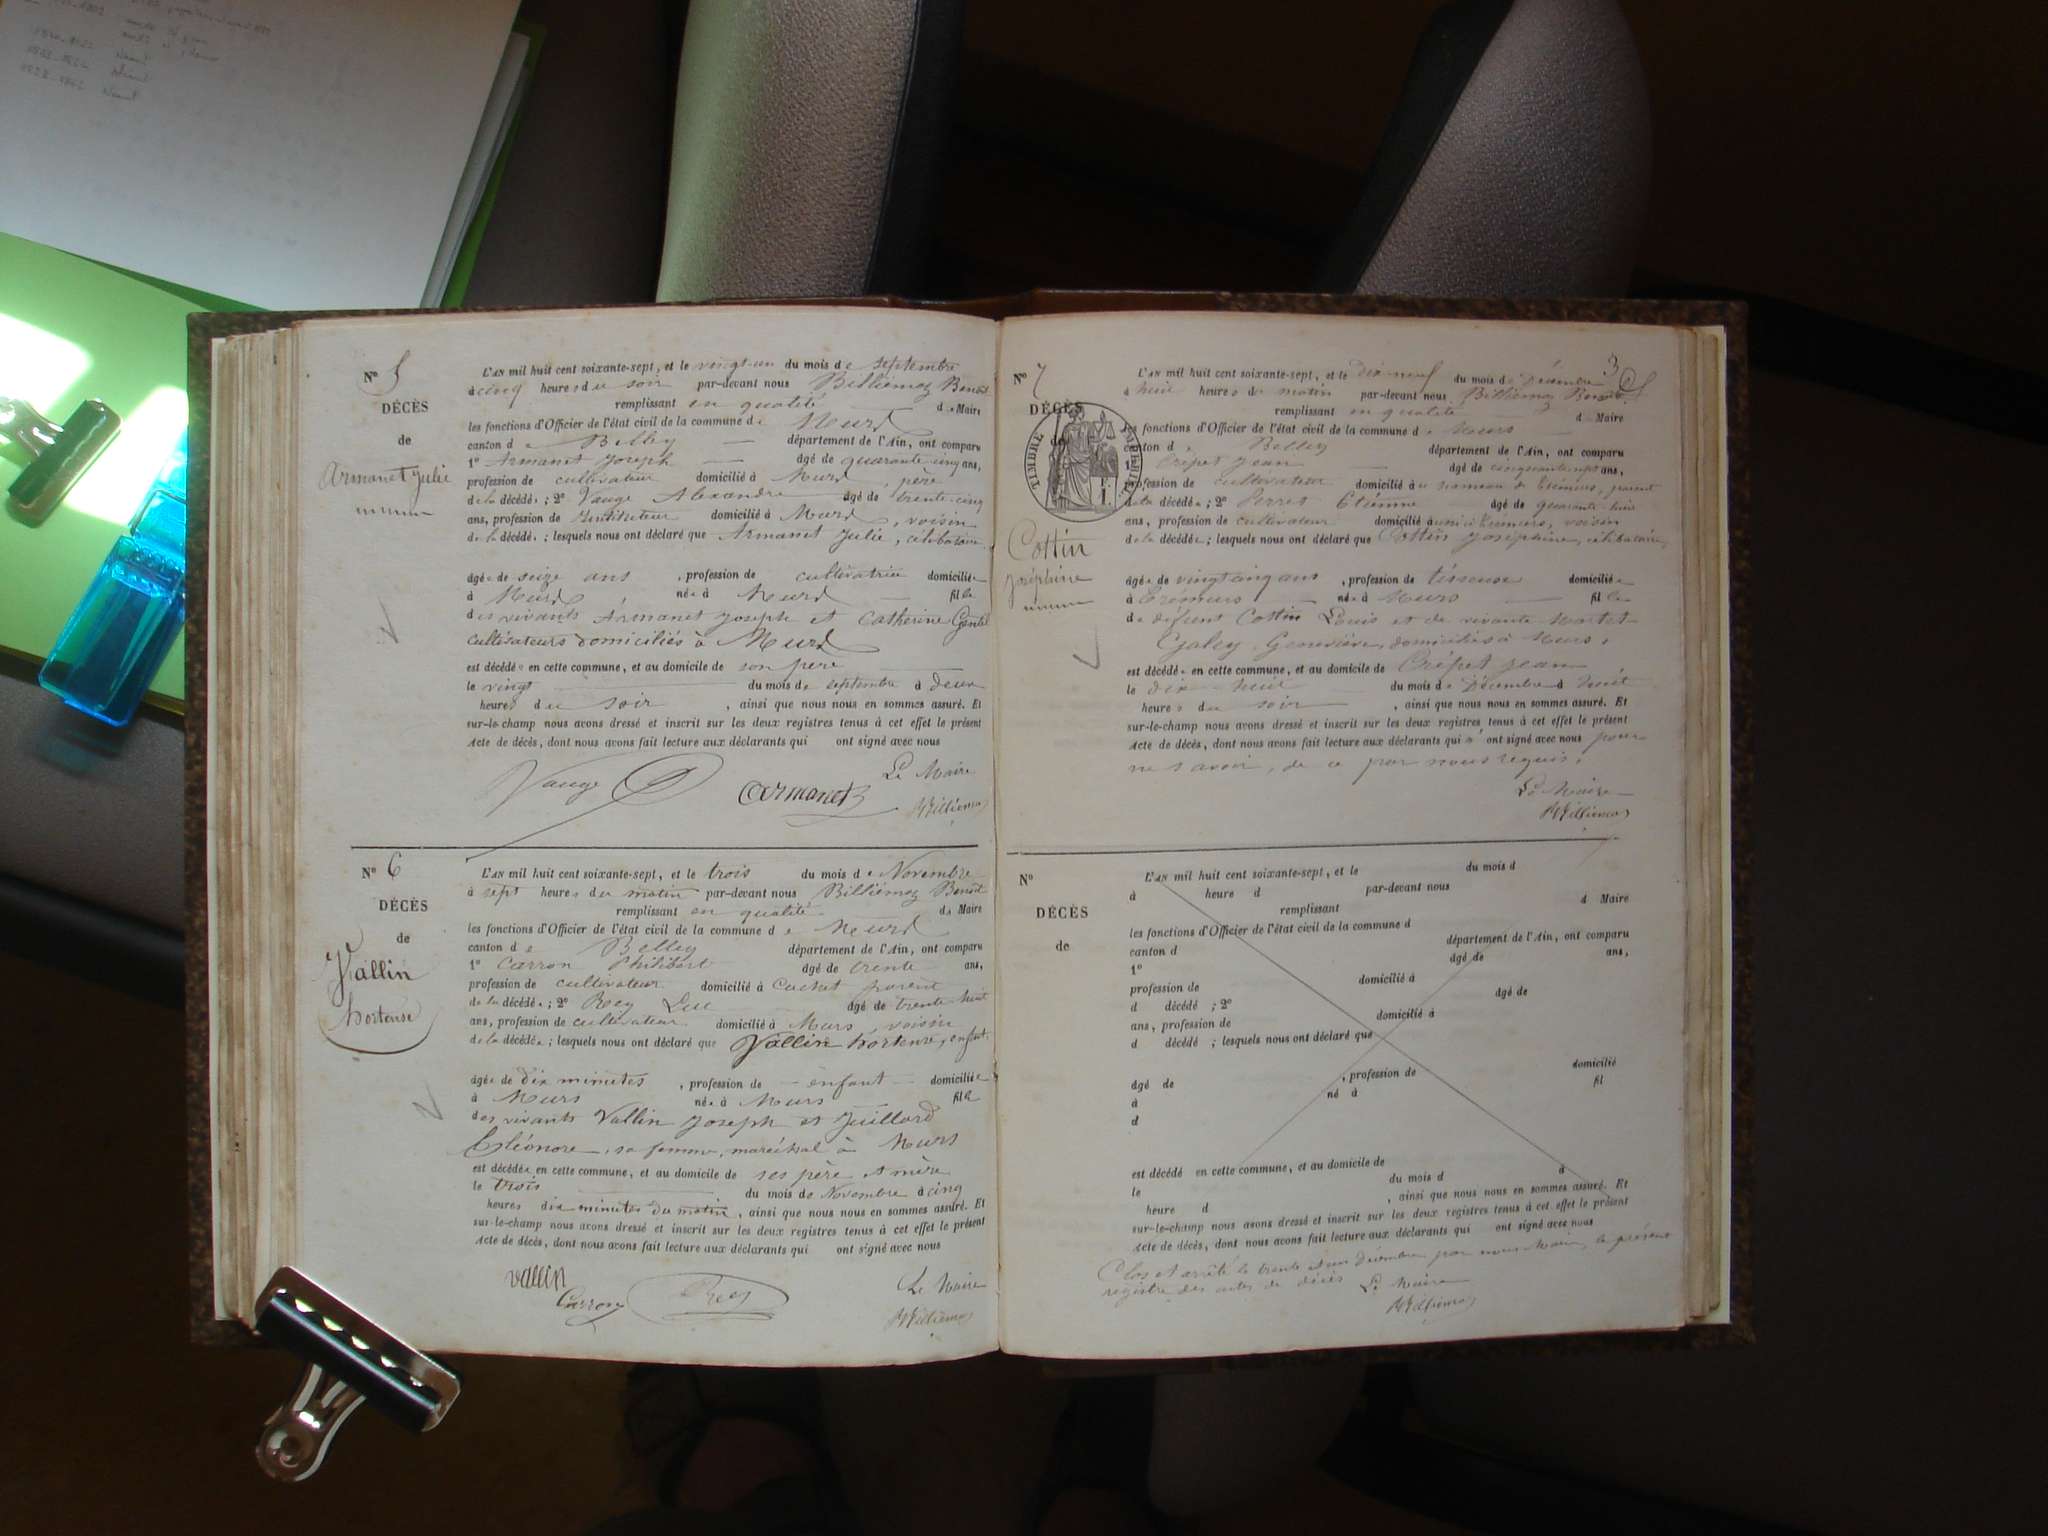 Nº 5
DÉCÈS
de
Armanet Julie
L'AN mil huit cent soixante-sept, et le vingt-un du mois de septembre
à cinq heures du soir par-devant nous Billiémoz Benoît
remplissant en qualité de Maire
les fonctions d'Officier de l'état civil de la commune de Murs
canton de Belley département de l'Ain, ont comparu
1º Armanet Joseph âgé de quarante-cinq ans,
profession de cultivateur domicilié à Murs, père
de la décédée; 2º Vauge Alexandre âgé de trente-cinq
ans, profession de Instituteur domicilié à Murs, voisin
de la décédée; lesquels nous ont déclaré que Armanet Julie, célibataire
âgée de seize ans, profession de cultivatrice domiciliée
à Murs née à Murs fille
des vivants Armanet Joseph et Catherine
cultivateurs domiciliés à Murs
est décédée en cette commune, et au domicile de son père
le vingt du mois de septembre à deux
heures du soir, ainsi que nous nous en sommes assuré. Et
sur-le-champ nous avons dressé et inscrit sur les deux registres tenus à cet effet le présent
Acte de décès, dont nous avons fait lecture aux déclarants qui ont signé avec nous
Vauge Armanet Le Maire
Billiémoz
Nº 6
DÉCÈS
de
Vallin
hortense
L'AN mil huit cent soixante-sept, et le trois du mois de Novembre
à sept heures du matin par-devant nous Billiémoz Benoît
remplissant en qualité de Maire
les fonctions d'Officier de l'état civil de la commune de Murs
canton de Belley département de l'Ain, ont comparu
1º Carron Philibert âgé de trente ans,
profession de cultivateur domicilié à Cuchet parent
de la décédée; 2º Rey Luc âgé de trente huit
ans, profession de cultivateur domicilié à Murs, voisin
de la décédée; lesquels nous ont déclaré que Vallin hortense, enfant
âgée de dix minutes, profession de enfant domiciliée
à Murs née à Murs fille
des vivants Vallin Joseph et Juillard
Eléonore, sa femme, maréchal à Murs
est décédée en cette commune, et au domicile de ses père et mère
le trois du mois de Novembre à cinq
heures dix minutes du matin, ainsi que nous nous en sommes assuré. Et
sur-le-champ nous avons dressé et inscrit sur les deux registres tenus à cet effet le présent
Acte de décès, dont nous avons fait lecture aux déclarants qui ont signé avec nous
Vallin
Carron Rey Le Maire
Billiémoz
Nº 7
DÉCÈS
de
TIMBRE IMPÉRIAL
Cottin
Joséphine
L'AN mil huit cent soixante-sept, et le dix-neuf du mois de Décembre
à huit heures du matin par-devant nous Billiémoz Benoît
remplissant en qualité de Maire
les fonctions d'Officier de l'état civil de la commune de Murs
canton de Belley département de l'Ain, ont comparu
1º Crépet Jean âgé de ans,
profession de cultivateur domicilié au hameau de parent
de la décédée; 2º Perret Etienne âgé de quarante-huit
ans, profession de cultivateur domicilié aussi à voisin
de la décédée; lesquels nous ont déclaré que Cottin Joséphine, célibataire,
âgée de vingt cinq ans, profession de tisseuse domiciliée
à née à Murs fille
de défunt Cottin Louis et de vivante
Geneviève, domiciliés à Murs,
est décédée en cette commune, et au domicile de Crépet Jean
le dix-huit du mois de Décembre à huit
heures du soir, ainsi que nous nous en sommes assuré. Et
sur-le-champ nous avons dressé et inscrit sur les deux registres tenus à cet effet le présent
Acte de décès, dont nous avons fait lecture aux déclarants qui n' ont signé avec nous pour
ne savoir, de ce par nous requis.
Le Maire
Billiémoz
Nº
DÉCÈS
de
L'AN mil huit cent soixante-sept, et le du mois d
à heure d par-devant nous
remplissant d Maire
les fonctions d'Officier de l'état civil de la commune d
canton d département de l'Ain, ont comparu
1º âgé de ans,
profession de domicilié à
d décédé ; 2º âgé de
ans, profession de domicilié à
d décédé ; lesquels nous ont déclaré que
âgé de , profession de domicilié
à né à fil
d
est décédé en cette commune, et au domicile de
le du mois d à
heure d , ainsi que nous nous en sommes assuré. Et
sur-le-champ nous avons dressé et inscrit sur les deux registres tenus à cet effet le présent
Acte de décès, dont nous avons fait lecture aux déclarants qui ont signé avec nous
Clos et arrêté le trente et un décembre par nous Maire, le présent
registre des actes de décès Le Maire
Billiémoz